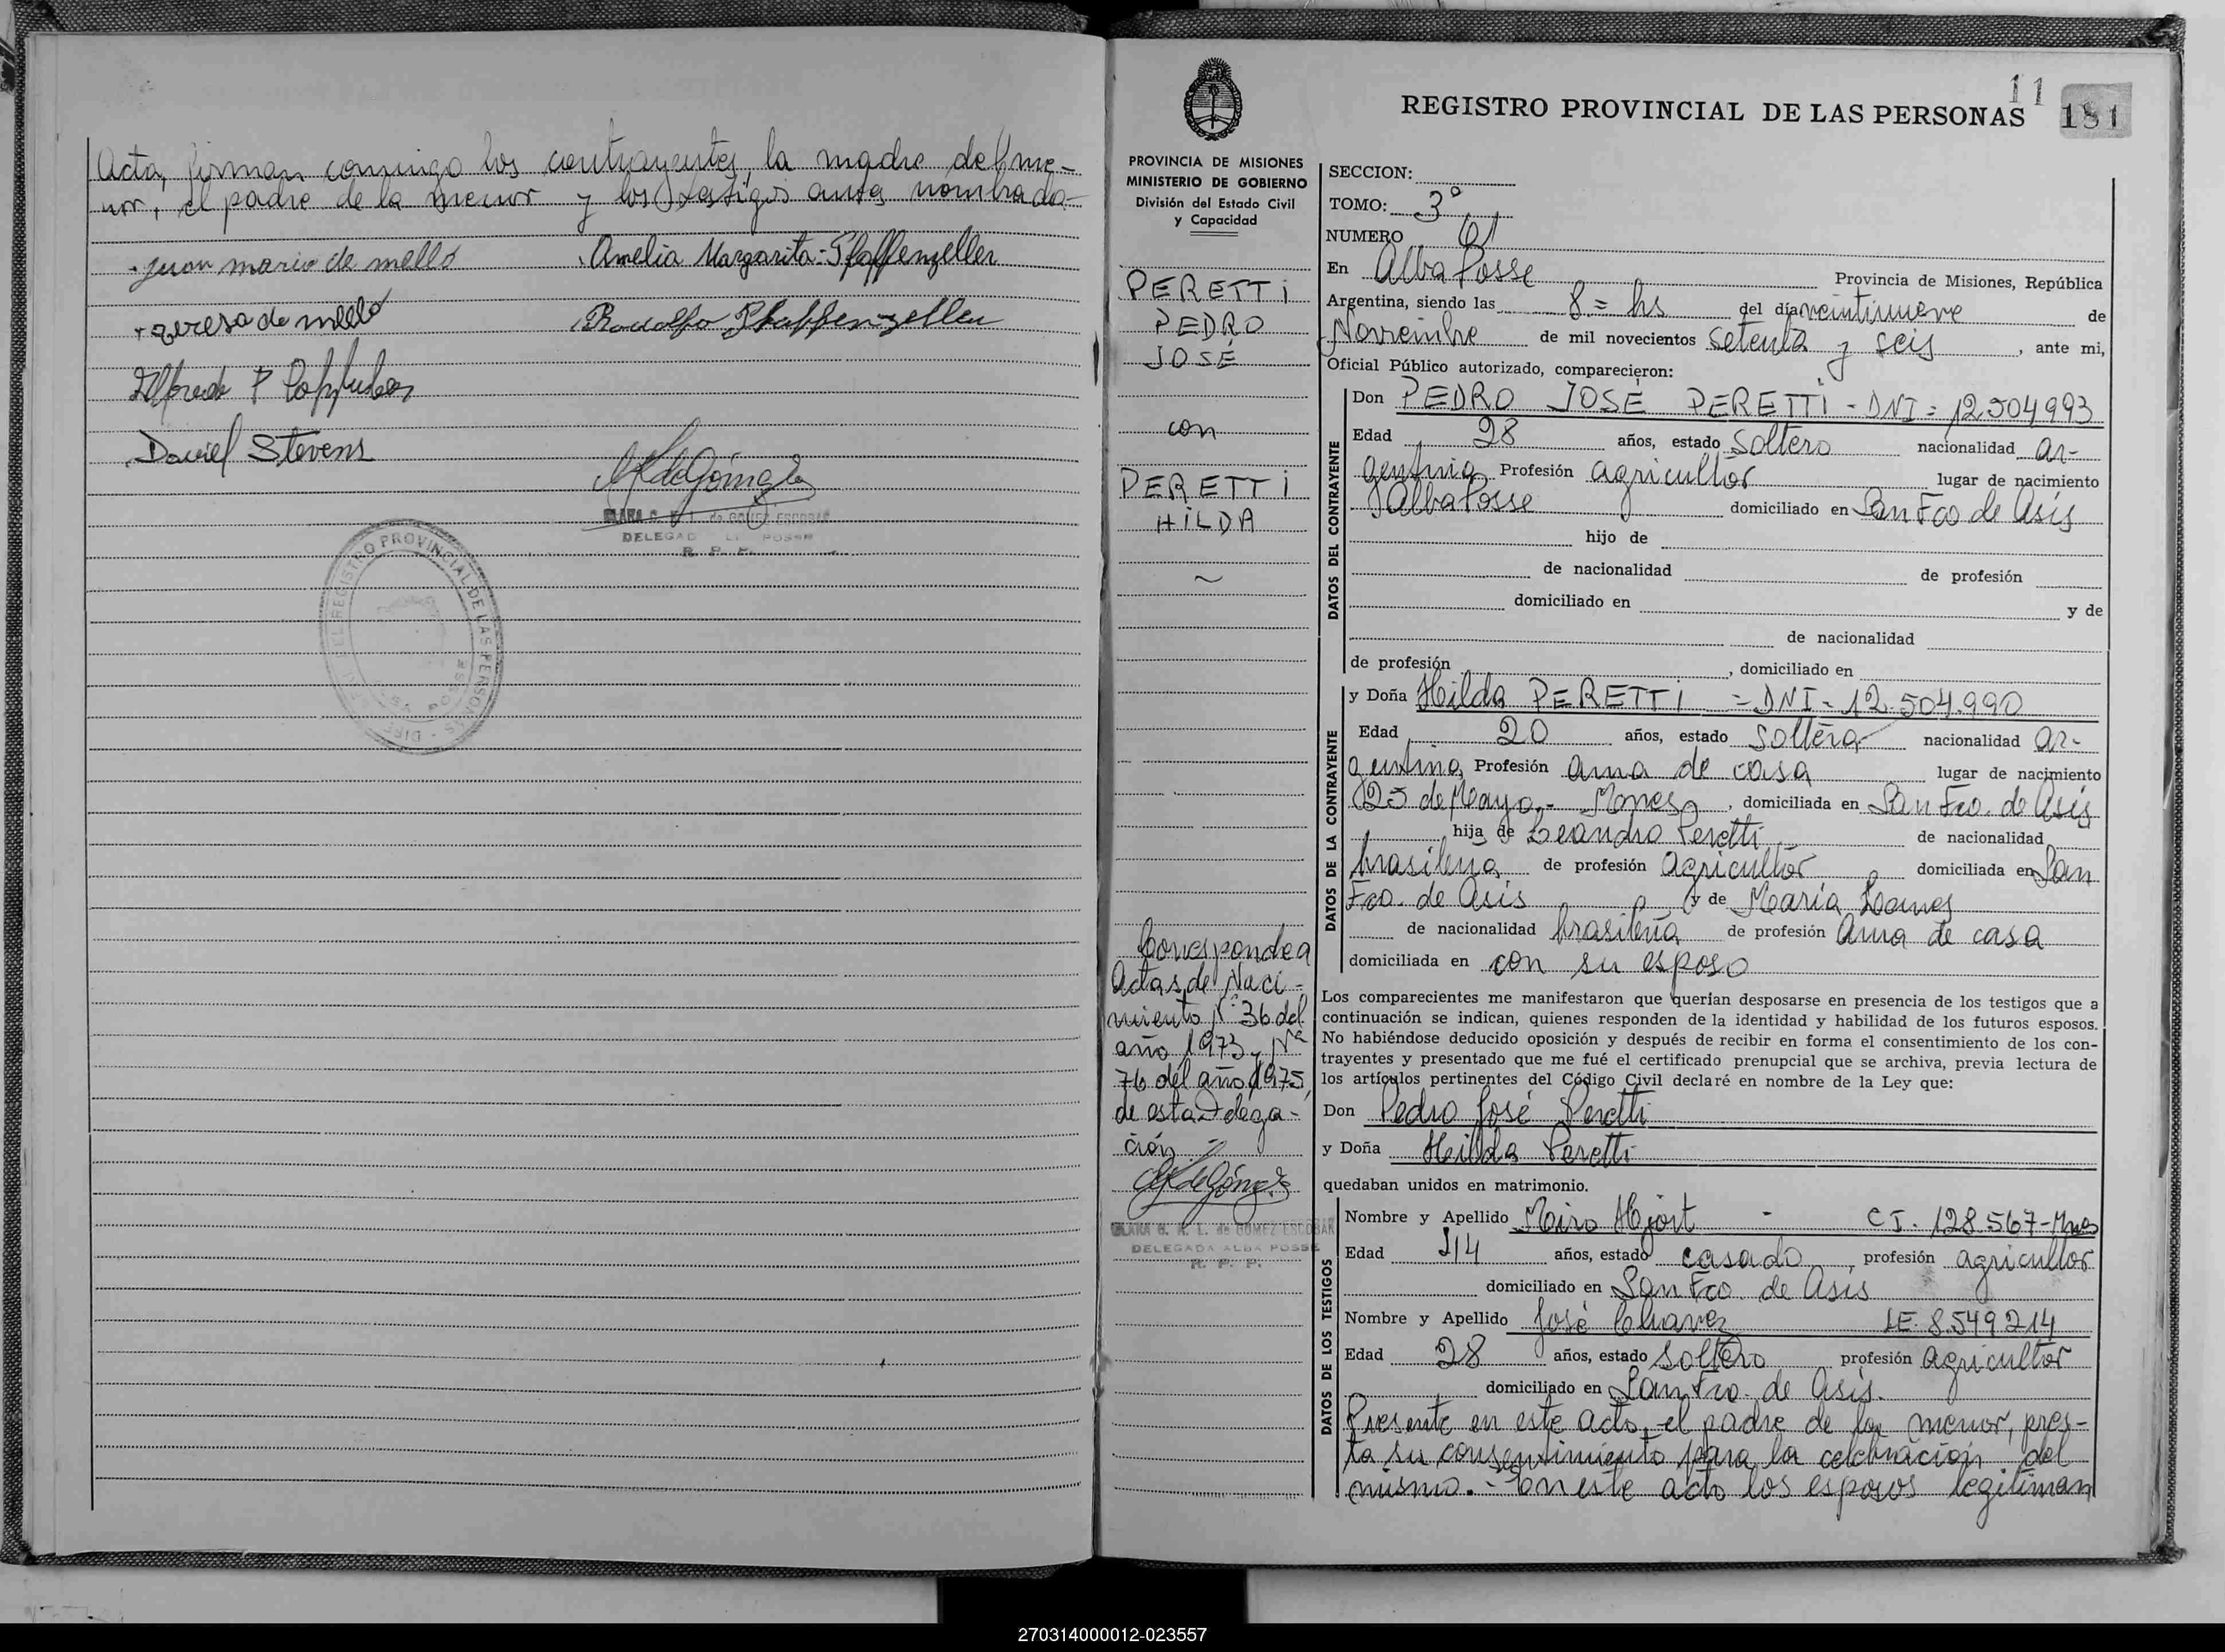 Acta, firman conmigo los contrayentes, la madre del me-
nor, el padre de la menor y los testigos antes nombrados-
Juan mario de mello
Amelia Margarita Pfaffenzeller
teresa de mello
Rodolfo Pfaffenzeller
Alfredo P
Daniel Stevens
CLARA G. K. L. de GOMEZ ESCOBAR
DELEGADA ALBA POSSE
R. P. P.
REGISTRO PROVINCIAL DE LAS PERSONAS
ALBA POSSE
11
181
REGISTRO PROVINCIAL DE LAS PERSONAS
PROVINCIA DE MISIONES
MINISTERIO DE GOBIERNO
División del Estado Civil
y Capacidad
PERETTI
PEDRO
JOSÉ
con
PERETTI
HILDA
~
Corresponde a
Actas de Naci-
miento Nº 36 del
año 1973 y Nº
76 del año 1975,
de esta Delega-
ción
CLARA G. K. L. de GOMEZ ESCOBAR
DELEGADA ALBA POSSE
R. P. P.
SECCION:
TOMO: 3º
NUMERO 61
En Alba Posse Provincia de Misiones, República
Argentina, siendo las 8= hs del día veintinueve de
Noviembre de mil novecientos setenta y seis, ante mi,
Oficial Público autorizado, comparecieron:
DATOS DEL CONTRAYENTE
Don PEDRO JOSÉ PERETTI - DNI = 12.504993
Edad 28 años, estado soltero nacionalidad ar-
gentina Profesión agricultor lugar de nacimiento
Alba Posse domiciliado en San Fco de Asís
hijo de
de nacionalidad de profesión
domiciliado en y de
de nacionalidad
de profesión , domiciliado en
DATOS DE LA CONTRAYENTE
y Doña Hilda PERETTI = DNI - 12.504.990
Edad 20 años, estado soltera nacionalidad ar-
gentina Profesión ama de casa lugar de nacimiento
25 de Mayo,- Mnes , domiciliada en San Fco. de Asís
hija de Leandro Peretti de nacionalidad
brasileña de profesión agricultor domiciliada en San
Fco. de Asís y de María
de nacionalidad brasileña de profesión Ama de casa
domiciliada en con su esposo
Los comparecientes me manifestaron que querían desposarse en presencia de los testigos que a
continuación se indican, quienes responden de la identidad y habilidad de los futuros esposos.
No habiéndose deducido oposición y después de recibir en forma el consentimiento de los con-
trayentes y presentado que me fué el certificado prenupcial que se archiva, previa lectura de
los artículos pertinentes del Código Civil declaré en nombre de la Ley que:
Don Pedro José Peretti
y Doña Hilda Peretti
quedaban unidos en matrimonio.
DATOS DE LOS TESTIGOS
Nombre y Apellido Miro Hjort - C I. 128.567-Mnes
Edad 44 años, estado casado, profesión agricultor
domiciliado en San Fco. de Asís
Nombre y Apellido José Chavez LE. 8.549.214
Edad 28 años, estado soltero profesión agricultor
domiciliado en San Fco. de Asís.
Presente en este acto, el padre de la menor, pres-
ta su consentimiento para la celebración del
mismo.- En este acto los esposos legitiman
270314000012-023557